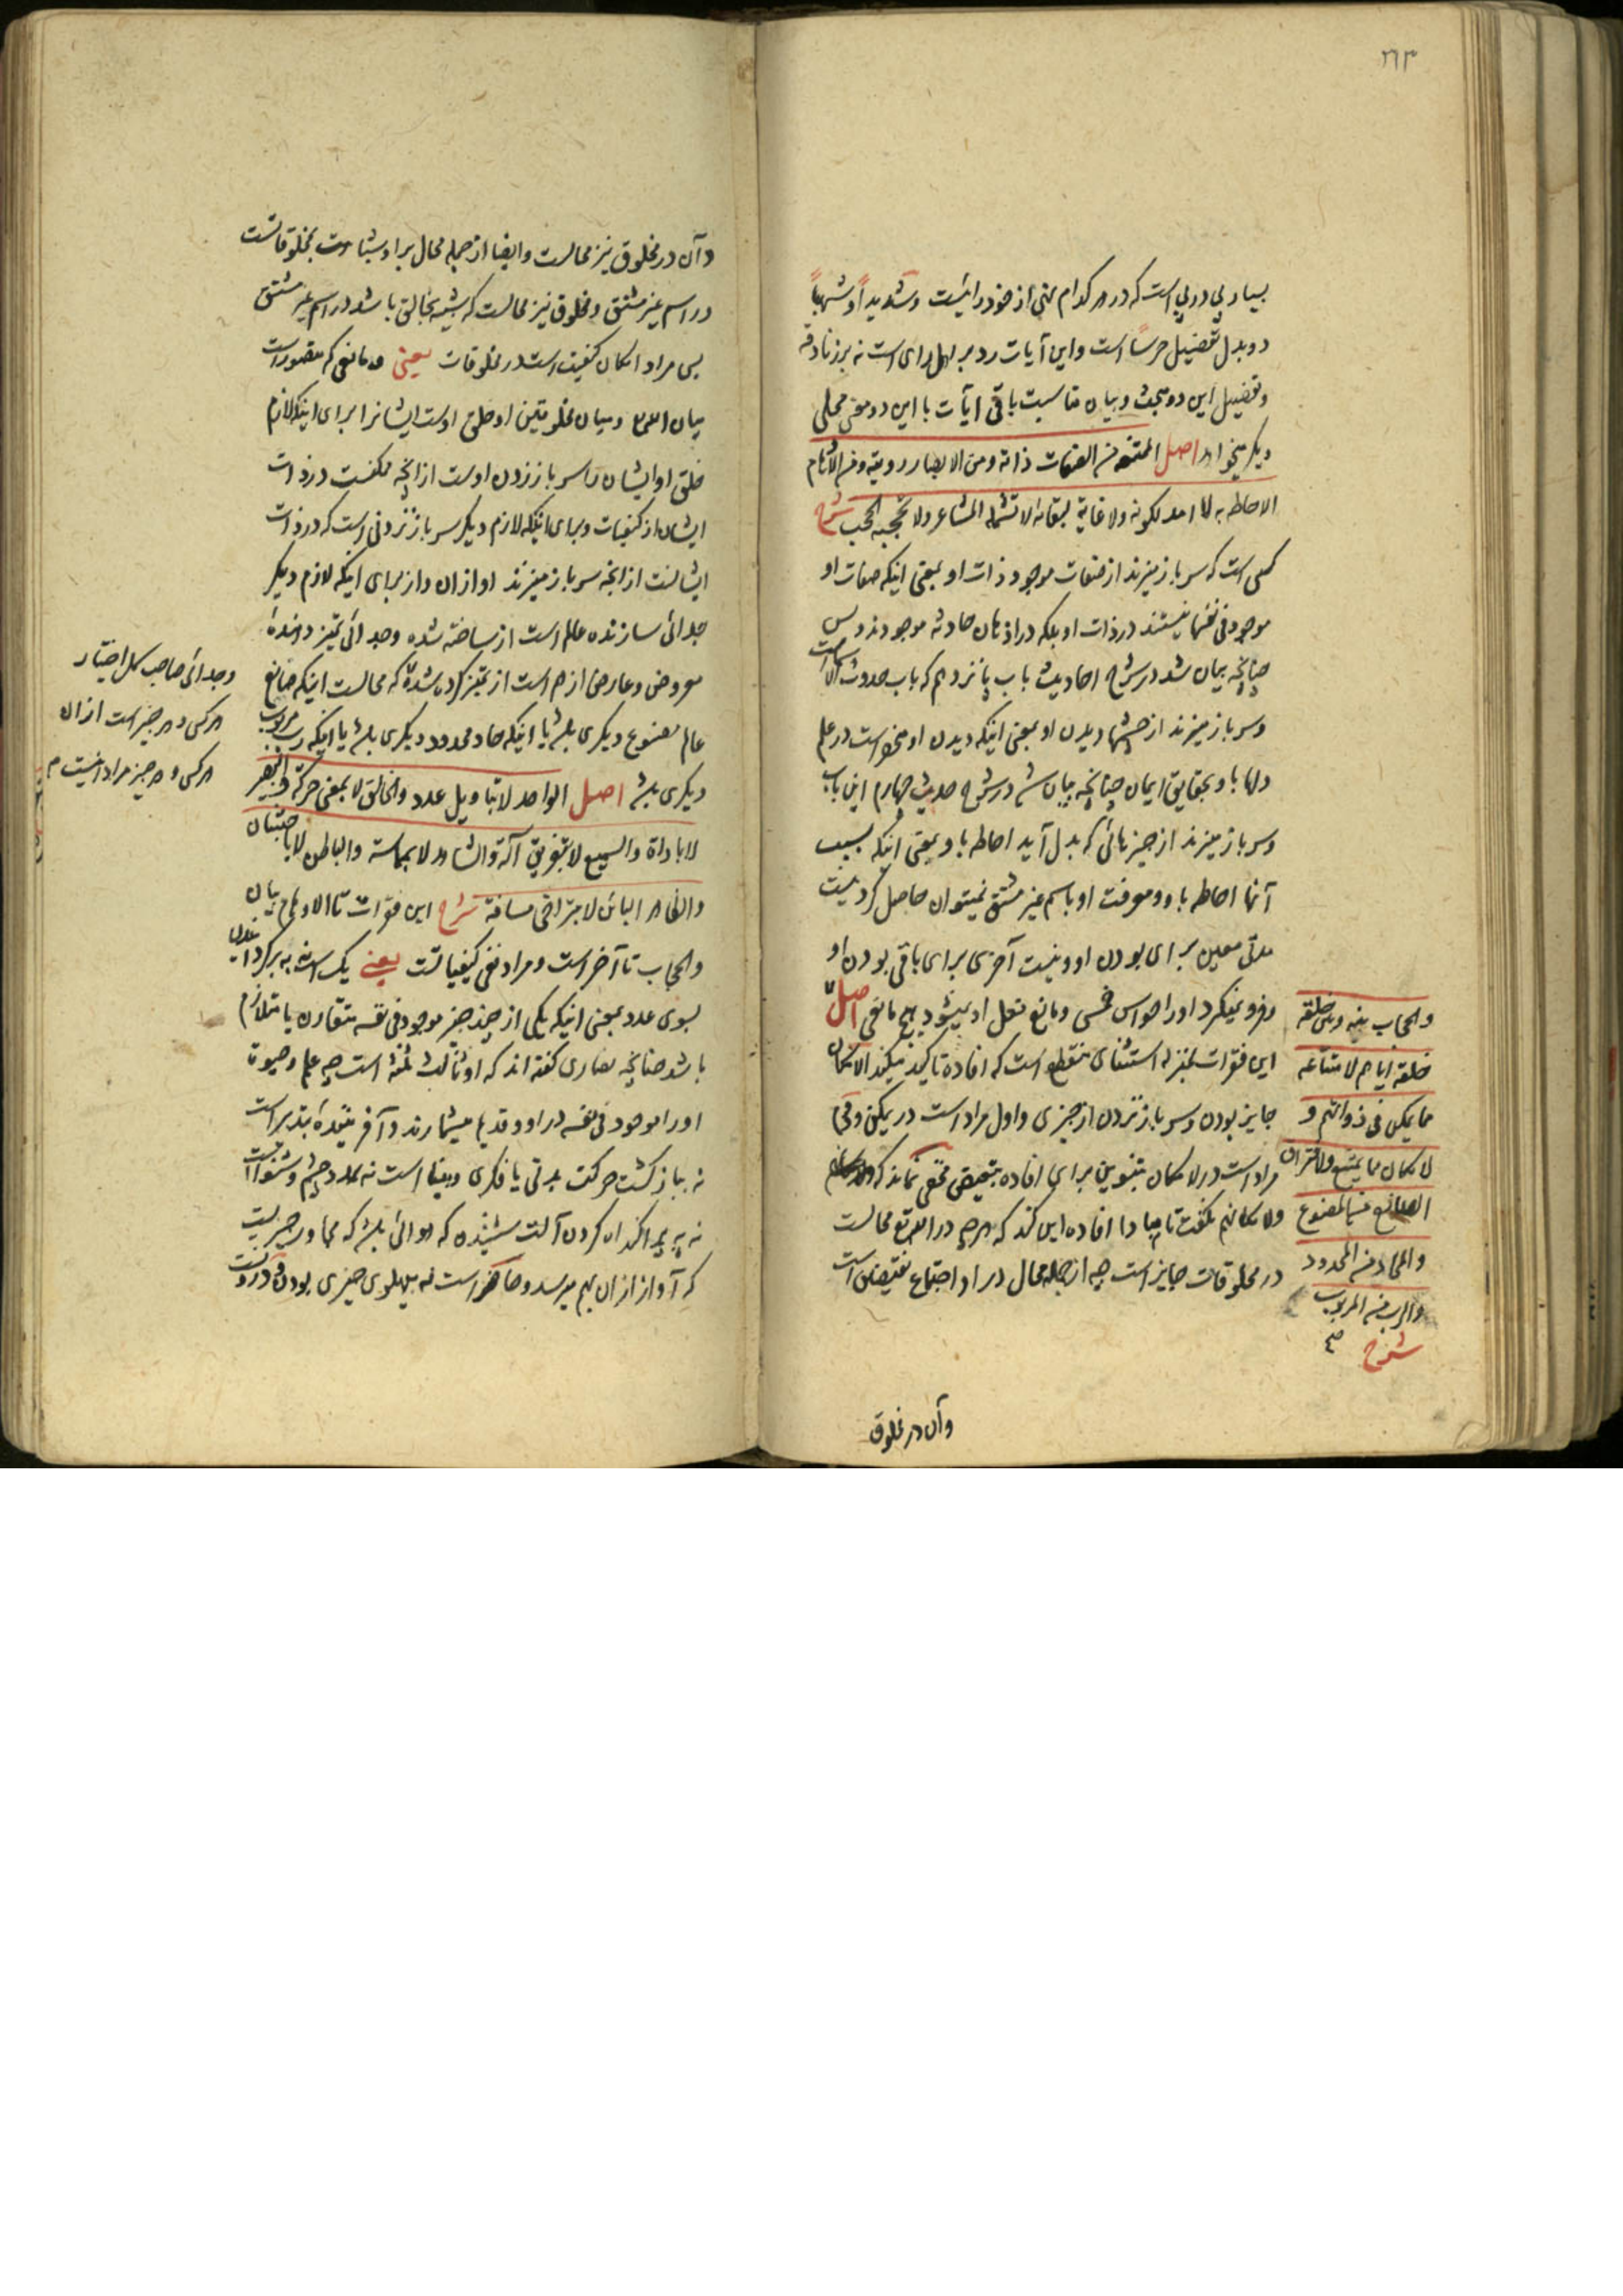 ٢٦٣
بسیار پی در پی است که در هر کدام سخنی از خود رائیست و شدیداً و شهباً
دو بدل تفصیل حرساً است و این آیات رد بر اهل رای است نه بر زنادقه
و تفصیل این دو مبحث و بیان مناسبت باقی آیات با این دو معنی محلی
دیگر میخواهد اصل الممتنعة من الصفات ذاته ومن الابصار رویته ومن الاوهام
الاحاطة به لا امد لکونه ولا غایة لبقائه لا تشمله المشاعر ولا تحجبه الحجب شرح
کسی است که سر باز میزند از صفات موجود ذات او بمعنی اینکه صفات او
موجود فی نفسها نیستند در ذات او بلکه در اذهان حادثه موجودند و بس
چنانچه بیان شد در شرح احادیث باب پانزدهم که باب حدوث الاسماست
و سر باز میزند از چشمها دیدن او بمعنی اینکه دیدن او منحصر است در علم
دلها باو بحقایق ایمان چنانچه بیان شد در شرح حدیث چهارم این باب
و سر باز میزند از چیزهائی که بدل آید احاطه باو بمعنی اینکه بسبب
آنها احاطه باو و معرفت او باسم غیر مشتق نمیتوان حاصل کرد نیست
مدتی معین برای بودن او و نیست آخری برای باقی بودن او
و فرو نمیگیرد او را حواس خمس و مانع فعل او نمیشود هیچ مانعی اصل
این فقرات بمنزله استثنای منقطع است که افاده تاکید میکند الامکان
جایز بودن و سر باز نزدن از چیزی و اول مراد است در یمکن و فی
مراد است در لامکان بتنوین برای افاده تبعیض مخفی نماند که
ولامکانهم نگفت تا مبادا افاده این کند که هر چه در الله تع محالست
در مخلوقات جایز است چه از جمله محال در او اجتماع نقیضین است
والحجاب بینه وبین خلقه
خلقه ایاهم لامتناعه
مما یمکن فی ذواتهم و
لامکان مما یمتنع ولافتراق
الصانع من المصنوع
والحاد من المحدود
والرب من المربوب
شرح صح
وآن در مخلوق
وآن در مخلوق نیز محالست وایضا از جمله محال بر او مشابهت بمخلوقاتست
در اسم غیر مشتق و مخلوق نیز محالست که شبیه بخالق باشد در اسم غیر مشتق
پس مراد امکان کیفیت است در مخلوقات یعنی و مانعی که مقصور است
میان الله تع و میان مخلوقین او خلق اوست ایشانرا برای اینکه لازم
خلق او ایشان را سر باز زدن اوست از آنچه ممکنست در ذات
ایشان از کیفیات و برای اینکه لازم دیگر سر باز نزدنی است که در ذات
ایشانست از آنچه سر باز میزند او از آن و از برای اینکه لازم دیگر
جدائی سازنده عالم است از ساخته شده وجدائی تمیز دهنده
معروض وعارض از هم است از تمیز کرده شده که محالست اینکه صانع
عالم مصنوع دیگری باشد یا اینکه حاد محدود دیگری باشد یا اینکه رب مربوب
دیگری باشد اصل الواحد لا بتاویل عدد والخالق لا بمعنی حرکة والبصیر
لا باداة والسمیع لا بتفریق آلة والشاهد لا بمماسة والباطن لا باجتنان
والظاهر البائن لا بتراخی مسافة شرح این فقرات تا الاوهام بیان
والحجاب تا آخر است و مراد نفی کیفیاتست یعنی یک است نه برگردانیدن
بسوی عدد بمعنی اینکه یکی از چند چیز موجود فی نفسه متقارن یا متلازم
باشد چنانچه نصاری گفته اند که او ثالث ثلثه است چه علم و حیوة
او را موجود فی نفسه در او و قدیم میشمارند و آفریننده بتدبیر است
نه بباز گشت حرکت بدنی یا فکری و بینا است نه بمدد چشم و شنوا است
نه به پراکنده کردن آلت شنیدن که هوائی باشد که مجاور چیزیست
که آواز ازان بهم میرسد و حاضر است نه بپهلوی چیزی بودن و درونست
وجدائی صاحب کل اختیار
هر کس و هر چیز است از آن
هر کس و هر چیز مراد اینست م